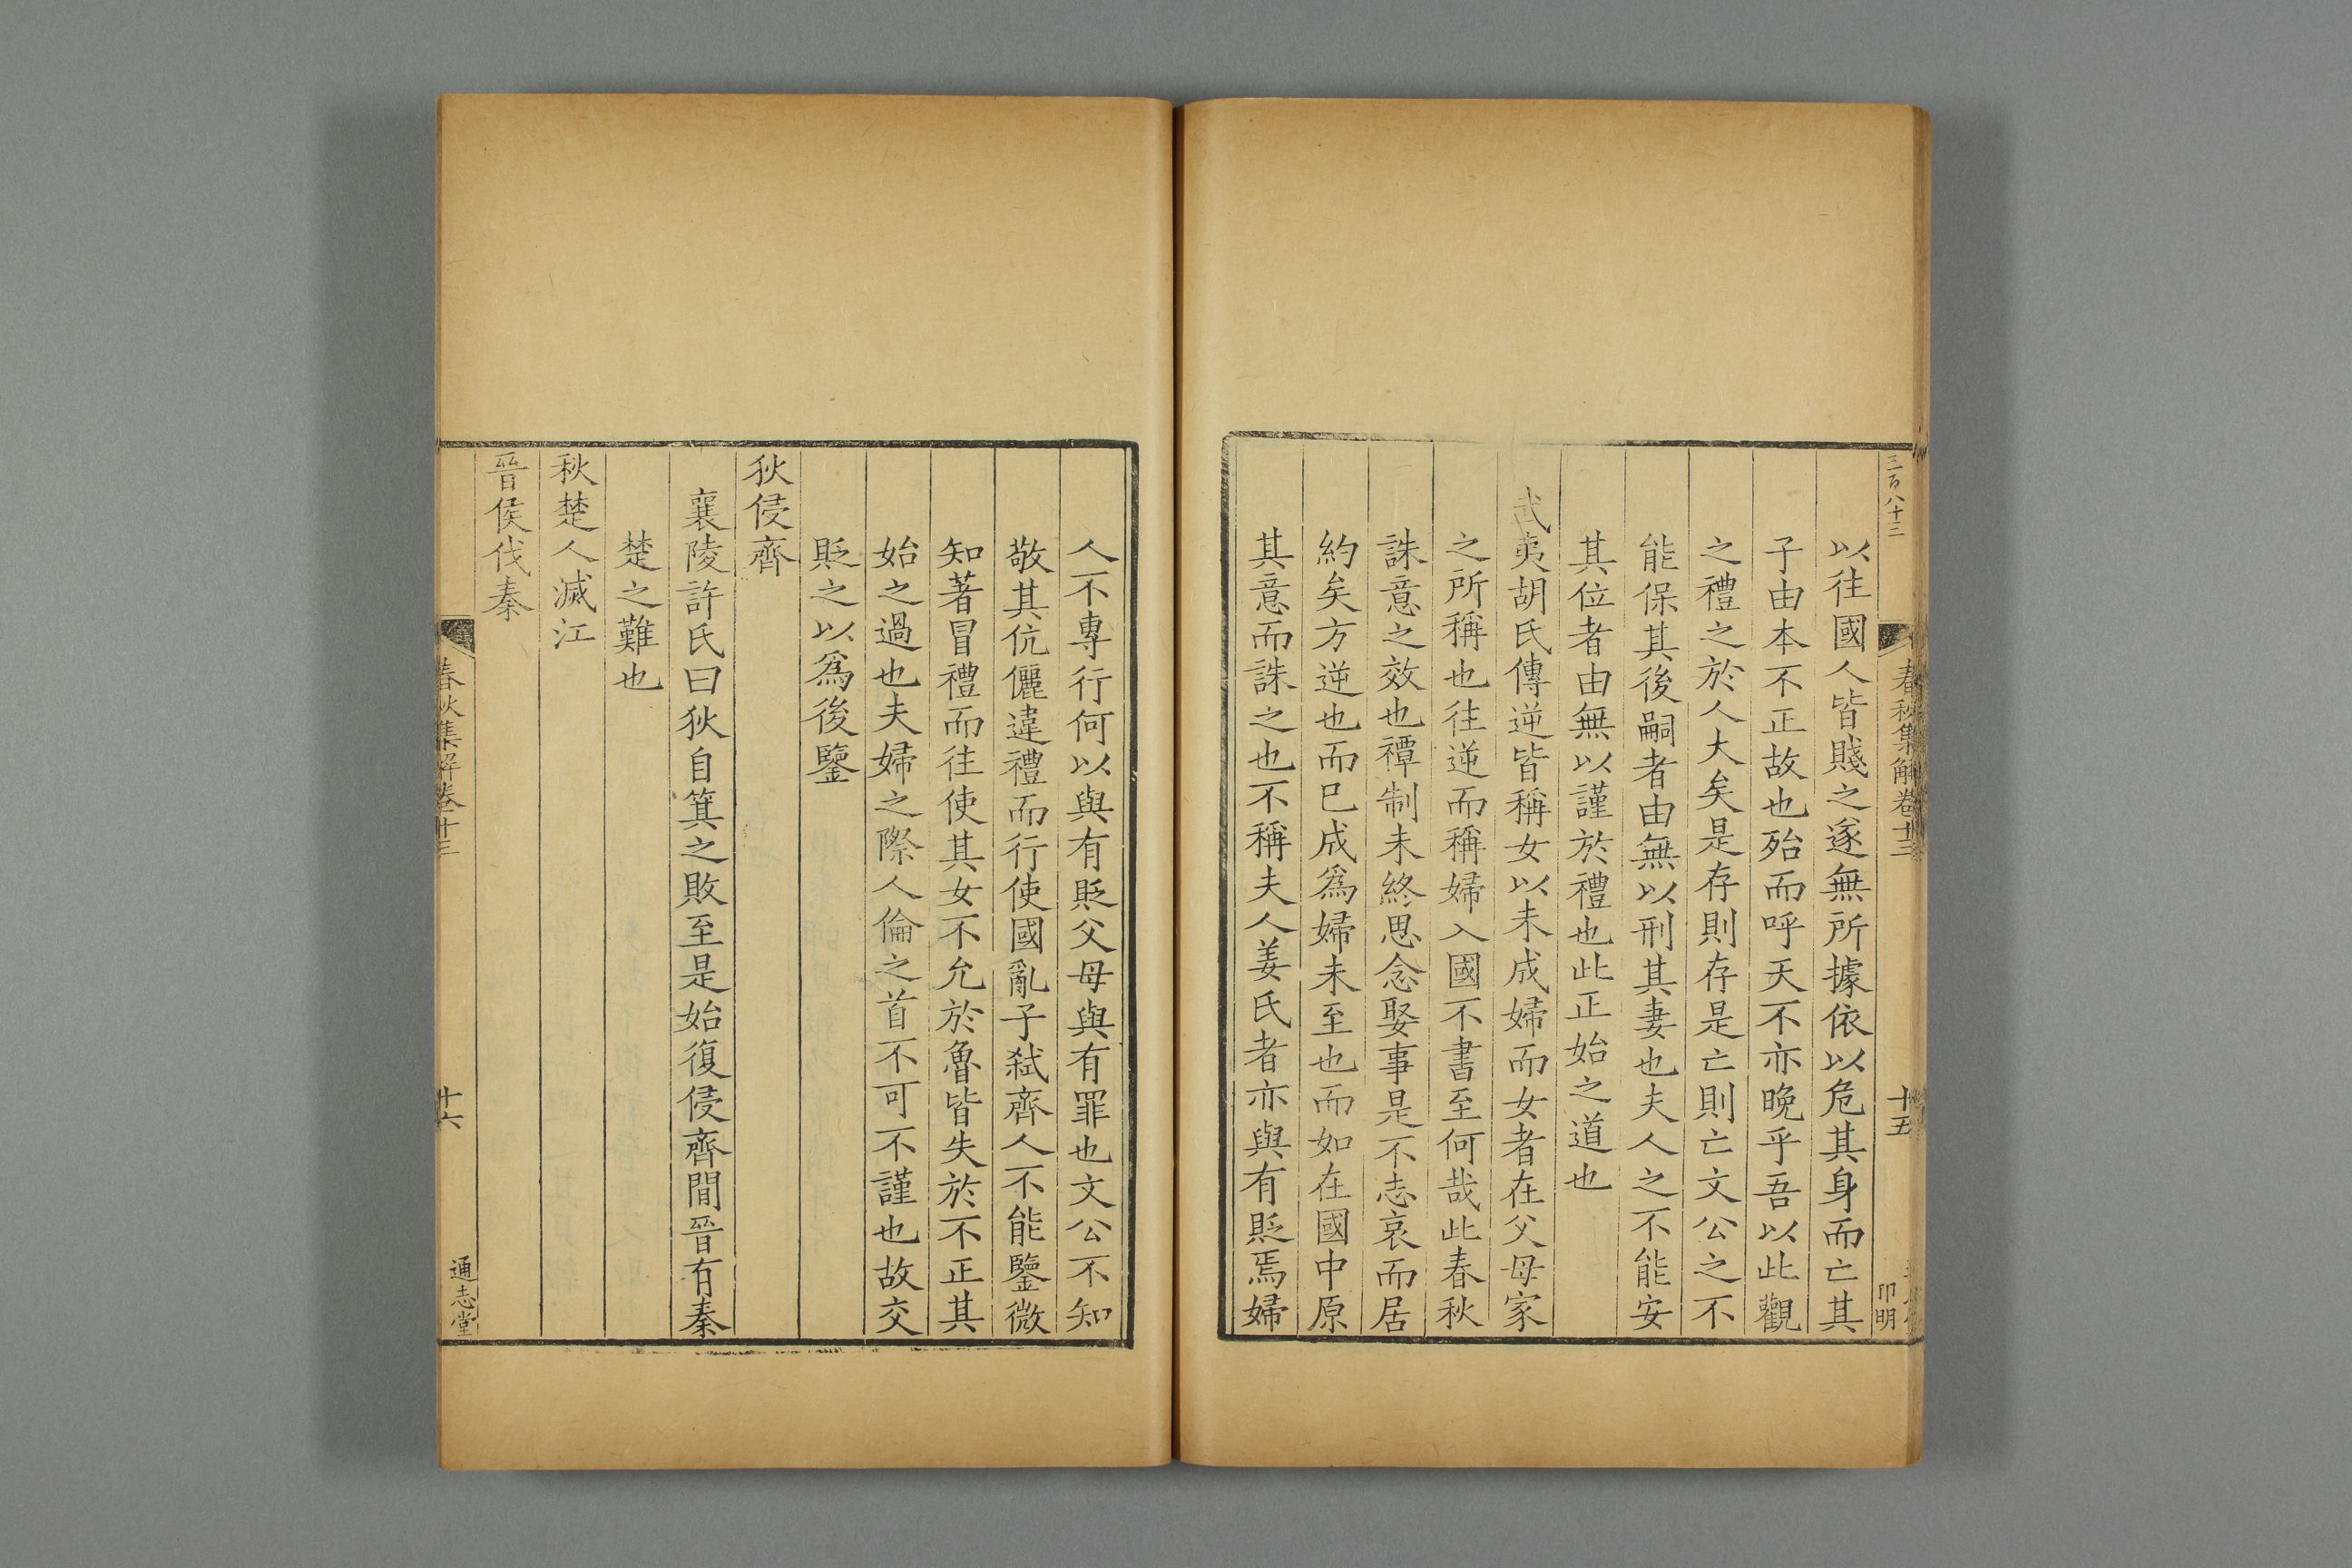 三百八十三
春秋集解卷十三
十五
印明
以往國人皆賤之遂無所據依以危其身而亡其
子由本不正故也殆而呼天不亦晚乎吾以此觀
之禮之於人大矣是存則存是亡則亡文公之不
能保其後嗣者由無以刑其妻也夫人之不能安
其位者由無以謹於禮也此正始之道也
武夷胡氏傳逆皆稱女以未成婦而女者在父母家
之所稱也往逆而稱婦入國不書至何哉此春秋
誅意之效也禫制未終思念娶事是不志哀而居
約矣方逆也而已成爲婦未至也而如在國中原
其意而誅之也不稱夫人姜氏者亦與有貶焉婦
人不專行何以與有貶父母與有罪也文公不知
敬其伉儷違禮而行使國亂子弒齊人不能鑒微
知著冒禮而往使其女不允於魯皆失於不正其
始之過也夫婦之際人倫之首不可不謹也故交
貶之以爲後鑒
狄侵齊
襄陵許氏曰狄自箕之敗至是始復侵齊間晉有秦
楚之難也
秋楚人滅江
晉侯伐秦
春秋集解卷十三
十六
通志堂